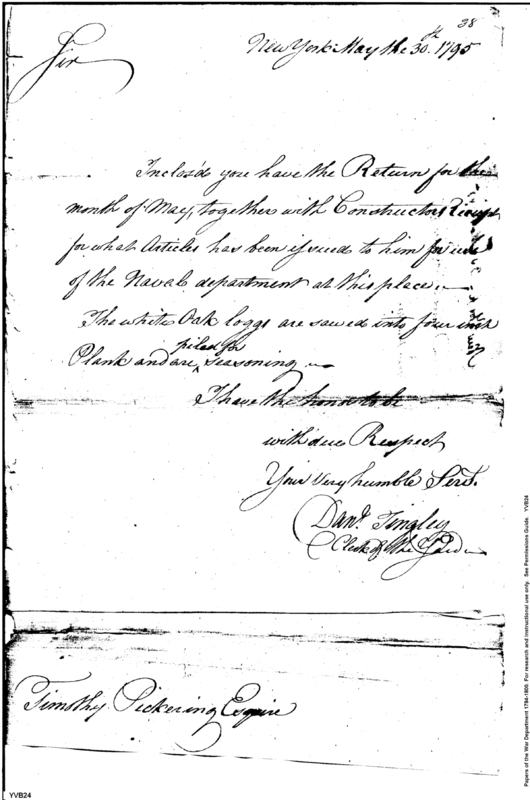 38
New York May the 30th. 1795
Sir
Inclos'd you have the Return for the
month of May, together with Constructors Receipt
for what Articles has been issued to him for use
of the Naval department at this place.
The white Oak loggs are sawed into four inch
piled for
Plank and are ^ seasoning
I have the honor to be
with due Respect
Your Very humble Servt.
Danl. Tingley
Clerk of the Yard
Timothy Pickering Esquire
YVB24
Papers of the War Department 1784-1800. For research and instructional use only. See Permissions Guide. YVB24